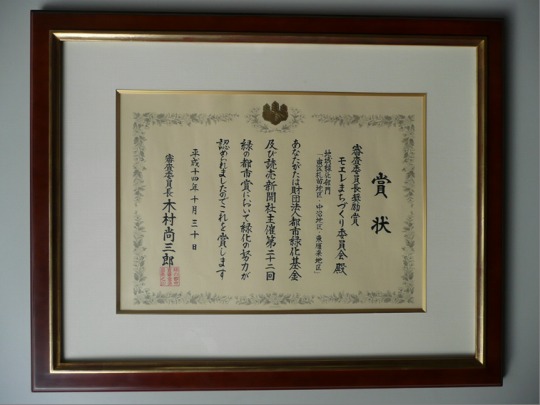 賞状
審査委員長奨励賞
モエレまちづくり委員会 殿
地域緑化部門
あなたがたは財団法人都市緑化基金
及び読売新聞社主催第二十二回
緑の都市賞において緑化の努力が
認められましたのでこれを賞します
平成十四年十月三十日
審査委員長 木村尚三郎